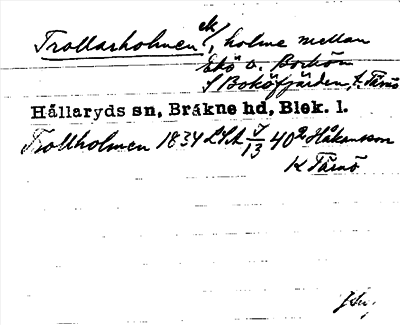 Trollasholmen ek/, holme mellan
Ekö o. Bockön
S Boköfjärden, t. Tärnö
Hällaryds sn, Bräkne hd, Blek. l.
Trollholmen 1834 LSA 7/13 40 2 Håkansson
K Tärnö